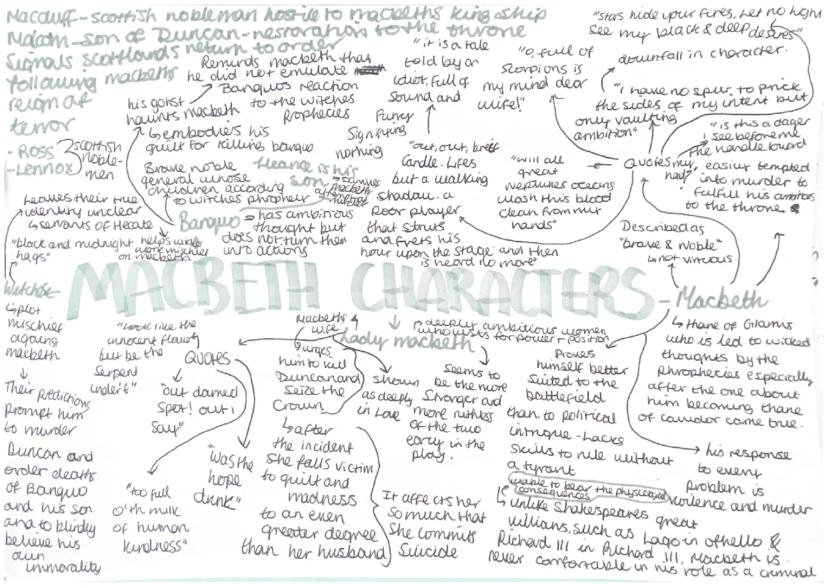 Macduff-scottish nobleman hostile to macbeths kingship
Malcom-son of Duncan-restoration to the throne
Signals scotlands return to order
following macbeths
reign of
terror
-Ross
-Lennox
scottish
noble-
men
Reminds macbeth that
he did not emulate
Banquos reaction
to the witches
prophecies
his gohst
haunts macbeth
↳embodies his
guilt for killing banquo
Brave noble
general whose
children according
to witches prophecy
fleance is his
son
Banquo
- has ambitious
thought but
does not turn them
into actions
"it is a tale
told by an
idiot, full of
sound and
fury
signifying
nothing
"o, full of
scorpions is
my mind dear
wife!"
"out, out, brief
candle. Lifes
but a walking
shadow. a
poor player
that struts
and frets his
hour upon the stage and then
is heard no more"
"will all
great
neptunes oceans
wash this blood
clean from my
hands"
"stars hide your fires, Let no light
see my black & deep desires"
downfall in character.
"I have no spur to prick
the sides of my intent but
only vaulting
ambition"
"is this a dager
I see before me
The handle toward
my
hand?"
Quotes
easier tempted
into murder to
fulfill his ambitions
to the throne
Described as
"brave & noble"
↳not virtuous
Leaves their true
identity unclear
↳servants of Hecate
"black and midnight
hags"
helps
work mischief
on macbeth
MACBETH CHARACTERS
- Macbeth
↳Thane of Glamis
who is led to wicked
thoughts by the
phrophecies especially
after the one about
him becoming thane
of cawdor come true.
Witches
↳plot
mischief
against
macbeth
Their predictions
prompt him
to murder
Duncan and
order deaths
of Banquo
and his son
and to blindly
believe his
own
immorality
"Look like the
innocent flower
but be the
serpent
under't"
QUOTES
"out damed
spot! out I
say"
"too full
o'th milk
of human
kindness"
"was the
hope
drunk"
Macbeths
wife
↳urges
him to kill
Duncan and
seize the
crown
↳after
the incident
she falls victim
to guilt and
madness
to an even
greater degree
than her husband
Lady macbeth
↳deeply ambitious women
who lusts for power + position
shown
as deeply
in love
Seems to
be the more
stronger and
more ruthless
of the two
early in the
play.
It affects her
so much that
she commits
suicide
Proves
himself better
suited to the
battlefield
than to political
intrigue-lacks
skills to rule without
a tyrant
unable to bear the
consequences
↳unlike Shakespeares great
villians, such as Iago in othello &
Richard III in Richard III, Macbeth is
never comfortable in his role as a criminal
his response
to every
problem is
violence and murder